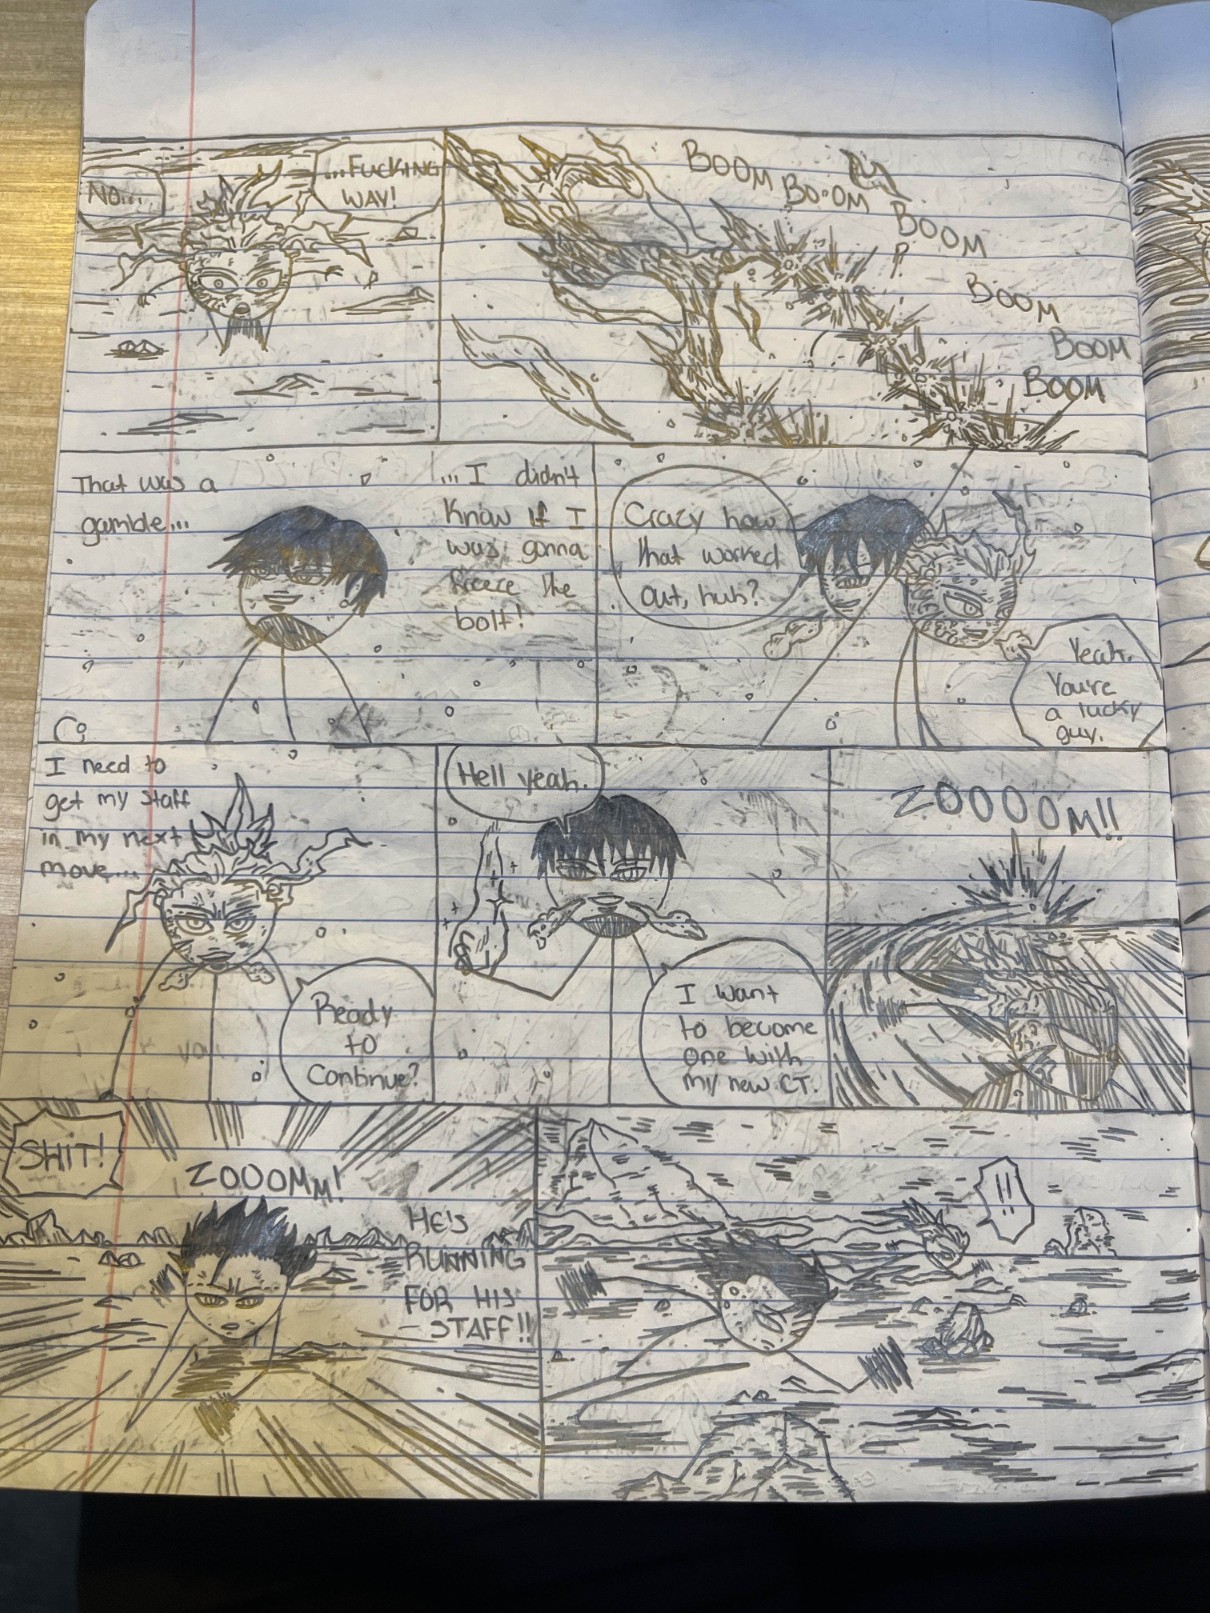 NO...
...FUCKING
WAY!
BOOM
BOOM
BOOM
BOOM
BOOM
BOOM
That was a
gamble...
... I didn't
Know If I
was gonna
freeze the
bolt!
Crazy how
that worked
out, huh?
Yeah.
You're
a lucky
guy.
I need to
get my staff
in my next
move...
Ready
to
Continue?
Hell yeah.
I want
to become
one with
my new CT.
ZOOOOM!!
SHIT!
ZOOOMM!
HE'S
RUNNING
FOR HIS
STAFF!!
!!